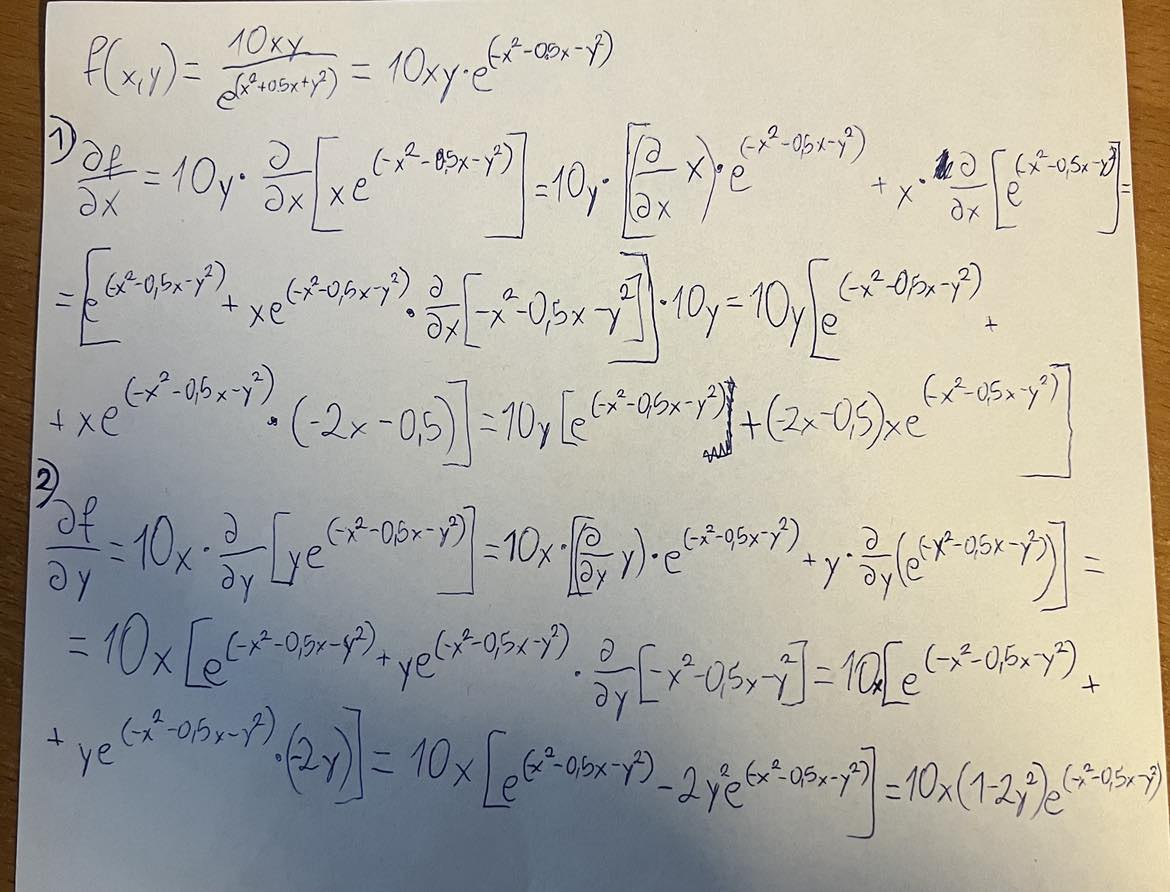 f(x,y) = 10xy / e^(x²+0.5x+y²) = 10xy · e^(-x²-0.5x-y²)
1) ∂f/∂x = 10y · ∂/∂x [xe^(-x²-0,5x-y²)] = 10y · [(∂/∂x x) · e^(-x²-0,5x-y²) + x · ∂/∂x [e^(-x²-0,5x-y²)] =
= [e^(-x²-0,5x-y²) + xe^(-x²-0,5x-y²) · ∂/∂x [-x²-0,5x-y²]] · 10y = 10y [e^(-x²-0,5x-y²) +
+ xe^(-x²-0,5x-y²) · (-2x-0,5)] = 10y [e^(-x²-0,5x-y²) + (-2x-0,5)xe^(-x²-0,5x-y²)]
2) ∂f/∂y = 10x · ∂/∂y [ye^(-x²-0,5x-y²)] = 10x · [(∂/∂y y) · e^(-x²-0,5x-y²) + y · ∂/∂y (e^(-x²-0,5x-y²))] =
= 10x [e^(-x²-0,5x-y²) + ye^(-x²-0,5x-y²) · ∂/∂y [-x²-0,5x-y²] = 10x [e^(-x²-0,5x-y²) +
+ ye^(-x²-0,5x-y²) · (-2y)] = 10x [e^(-x²-0,5x-y²) - 2y²e^(-x²-0,5x-y²)] = 10x(1-2y²)e^(-x²-0,5x-y²)